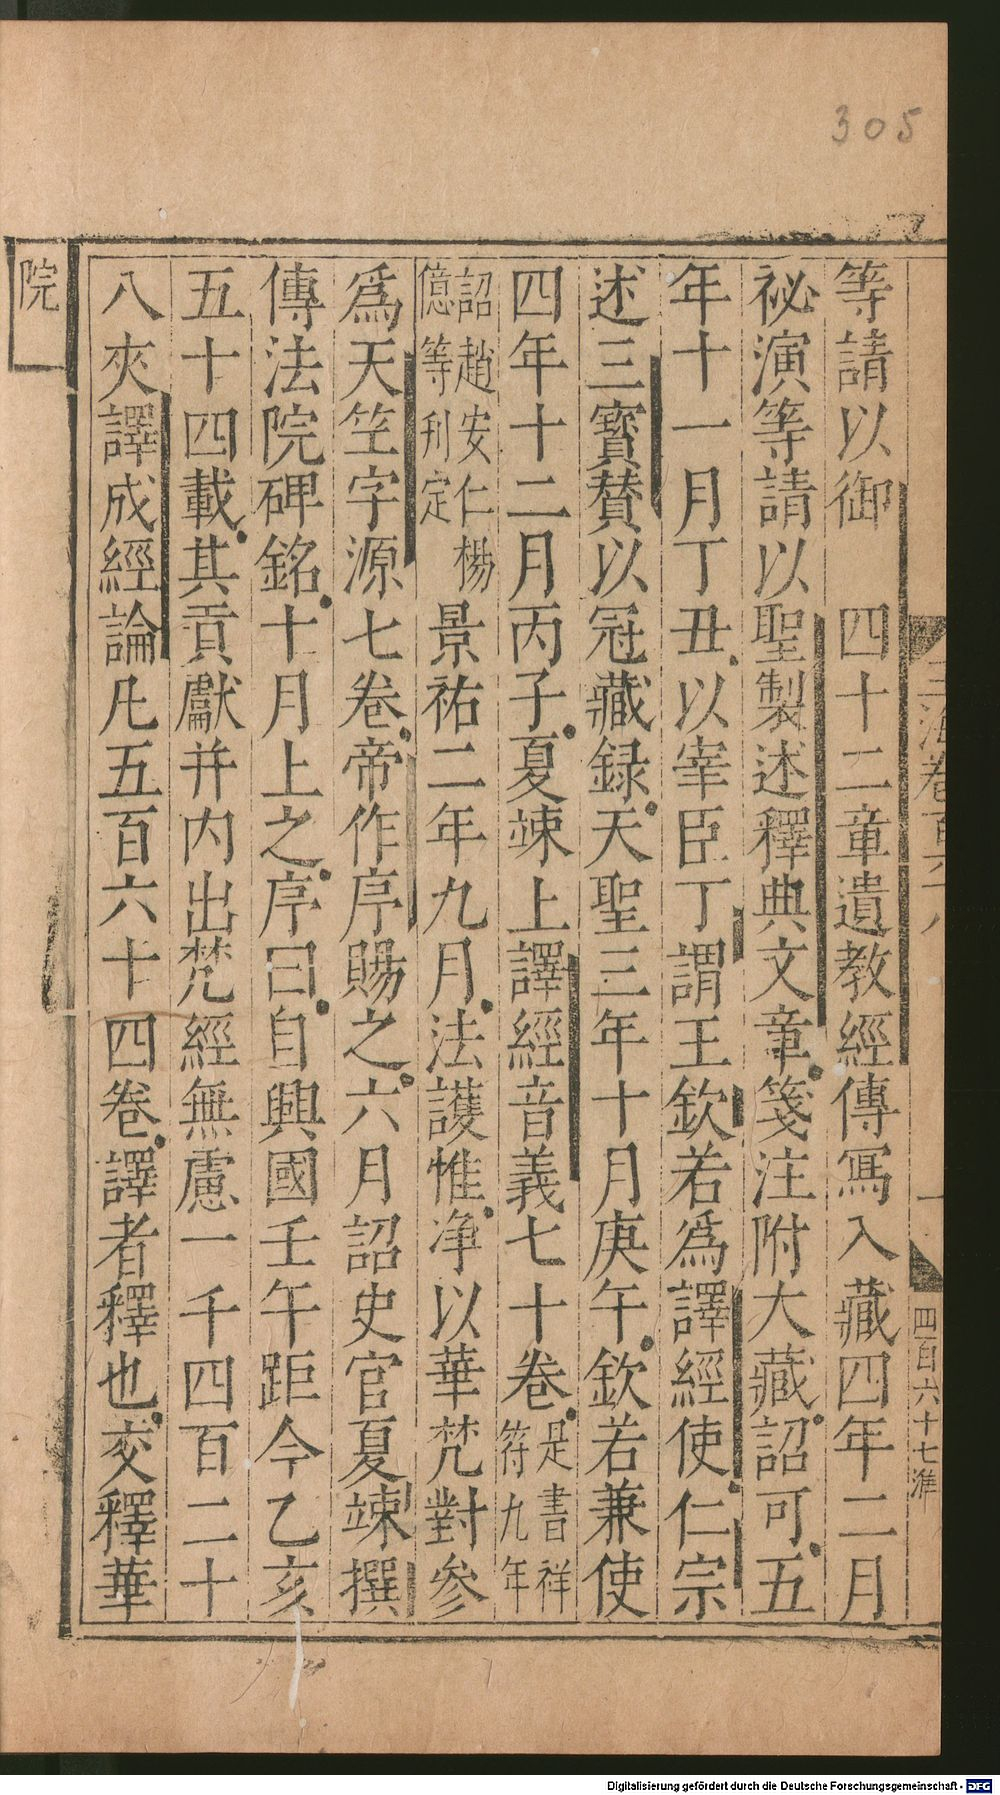 305
玉海卷百六十八
一
四百六十七淮
等請以御　四十二章遺教經傳寫入藏四年二月
祕演等請以聖製述釋典文章箋注附大藏詔可五
年十一月丁丑以宰臣丁謂王欽若爲譯經使仁宗
述三寳賛以冠藏録天聖三年十月庚午欽若兼使
四年十二月丙子夏竦上譯經音義七十卷是書祥符九年
詔趙安仁楊億等刋定景祐二年九月法護惟净以華梵對參
爲天竺字源七卷帝作序賜之六月詔史官夏竦撰
傳法院碑銘十月上之序曰自興國壬午距今乙亥
五十四載其貢獻并内出梵經無慮一千四百二十
八夾譯成經論凡五百六十四卷譯者釋也交釋華
院一
Digitalisierung gefördert durch die Deutsche Forschungsgemeinschaft - DFG